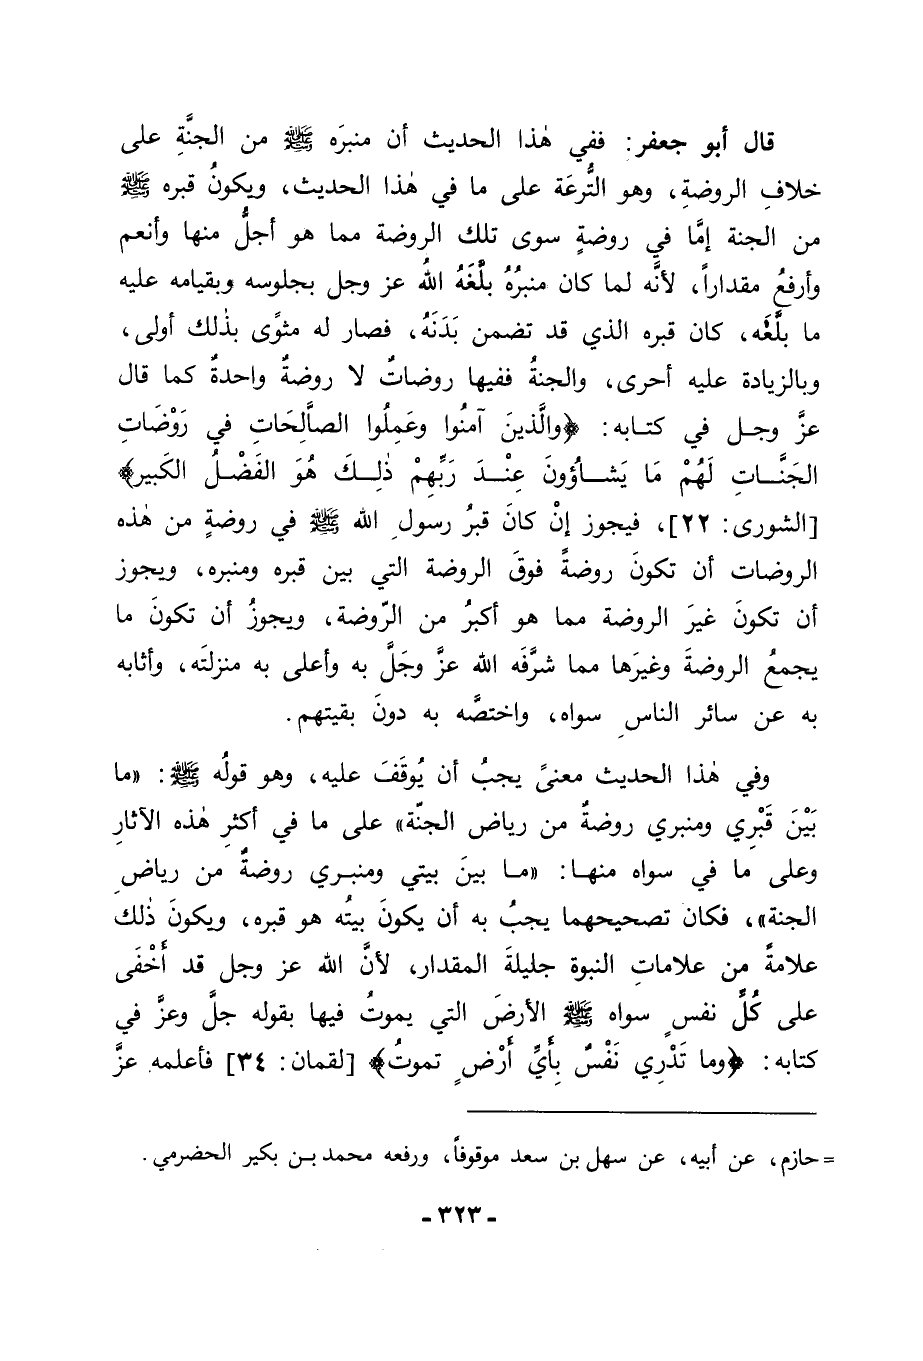 قال أبو جعفر: ففي هٰذا الحديث أن منبرَه ﷺ من الجنَّةِ على
خلافِ الروضةِ، وهو التُّرعَة على ما في هٰذا الحديث، ويكونُ قبره ﷺ
من الجنة إمَّا في روضةٍ سوى تلك الروضة مما هو أجلُّ منها وأنعم
وأرفعُ مقداراً، لأنَّه لما كان منبرُهُ بلَّغَهُ اللهُ عز وجل بجلوسه وبقيامه عليه
ما بلَّغَه، كان قبره الذي قد تضمن بَدَنَهُ، فصار له مثوًى بذٰلك أولى،
وبالزيادة عليه أحرى، والجنةُ ففيها روضاتٌ لا روضةٌ واحدةٌ كما قال
عزَّ وجل في كتابه: ﴿والَّذينَ آمنُوا وعَمِلُوا الصاَّلِحَاتِ في رَوْضَاتِ
الجَنَّاتِ لَهُمْ مَا يَشاؤونَ عِنْدَ رَبِّهِمْ ذٰلِكَ هُوَ الفَضْلُ الكَبير﴾
[الشورى: ٢٢]، فيجوز إنْ كانَ قبرُ رسولِ الله ﷺ في روضةٍ من هٰذه
الروضات أن تكونَ روضةً فوقَ الروضة التي بين قبره ومنبره، ويجوز
أن تكونَ غيرَ الروضة مما هو أكبرُ من الرّوضة، ويجوزُ أن تكونَ ما
يجمعُ الروضةَ وغيرَها مما شرَّفَه الله عزَّ وجَلَّ به وأعلى به منزلتَه، وأثابه
به عن سائر الناسِ سواه، واختصَّه به دونَ بقيتهم.
وفي هٰذا الحديث معنىً يجبُ أن يُوقَفَ عليه، وهو قولُه ﷺ: «ما
بَيْنَ قَبْرِي ومنبري روضةٌ من رياض الجنّة» على ما في أكثرِ هٰذه الآثارِ
وعلى ما في سواه منها: «ما بينَ بيتي ومنبري روضةٌ من رياضِ
الجنة»، فكان تصحيحهما يجبُ به أن يكونَ بيتُه هو قبره، ويكونَ ذٰلك
علامةً من علاماتِ النبوة جليلةَ المقدار، لأنَّ الله عز وجل قد أَخْفَى
على كُلِّ نفسٍ سواه ﷺ الأرضَ التي يموتُ فيها بقوله جلَّ وعزَّ في
كتابه: ﴿وما تَدْرِي نَفْسٌ بِأَيِّ أَرْضٍ تموتُ﴾ [لقمان: ٣٤] فأعلمه عزَّ
= حازم، عن أبيه، عن سهل بن سعد موقوفاً، ورفعه محمد بن بكير الحضرمي.
- ٣٢٣ -